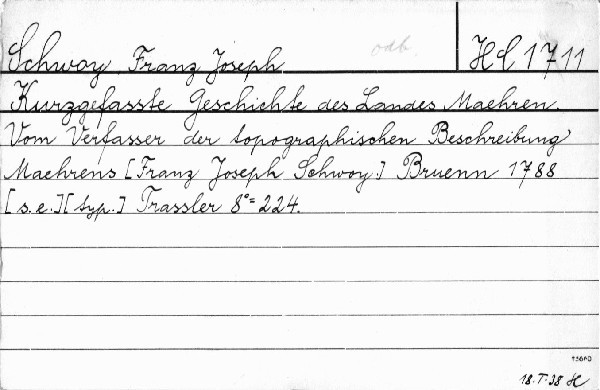 Schwoy Franz Joseph odb HC 1711
Kurzgefasste Geschichte des Landes Maehren.
Vom Verfasser der topographischen Beschreibung
Maehrens [Franz Joseph Schwoy.] Bruenn 1788
[s. e.] [typ.] Trassler 8°= 224.
18. I. 38 H